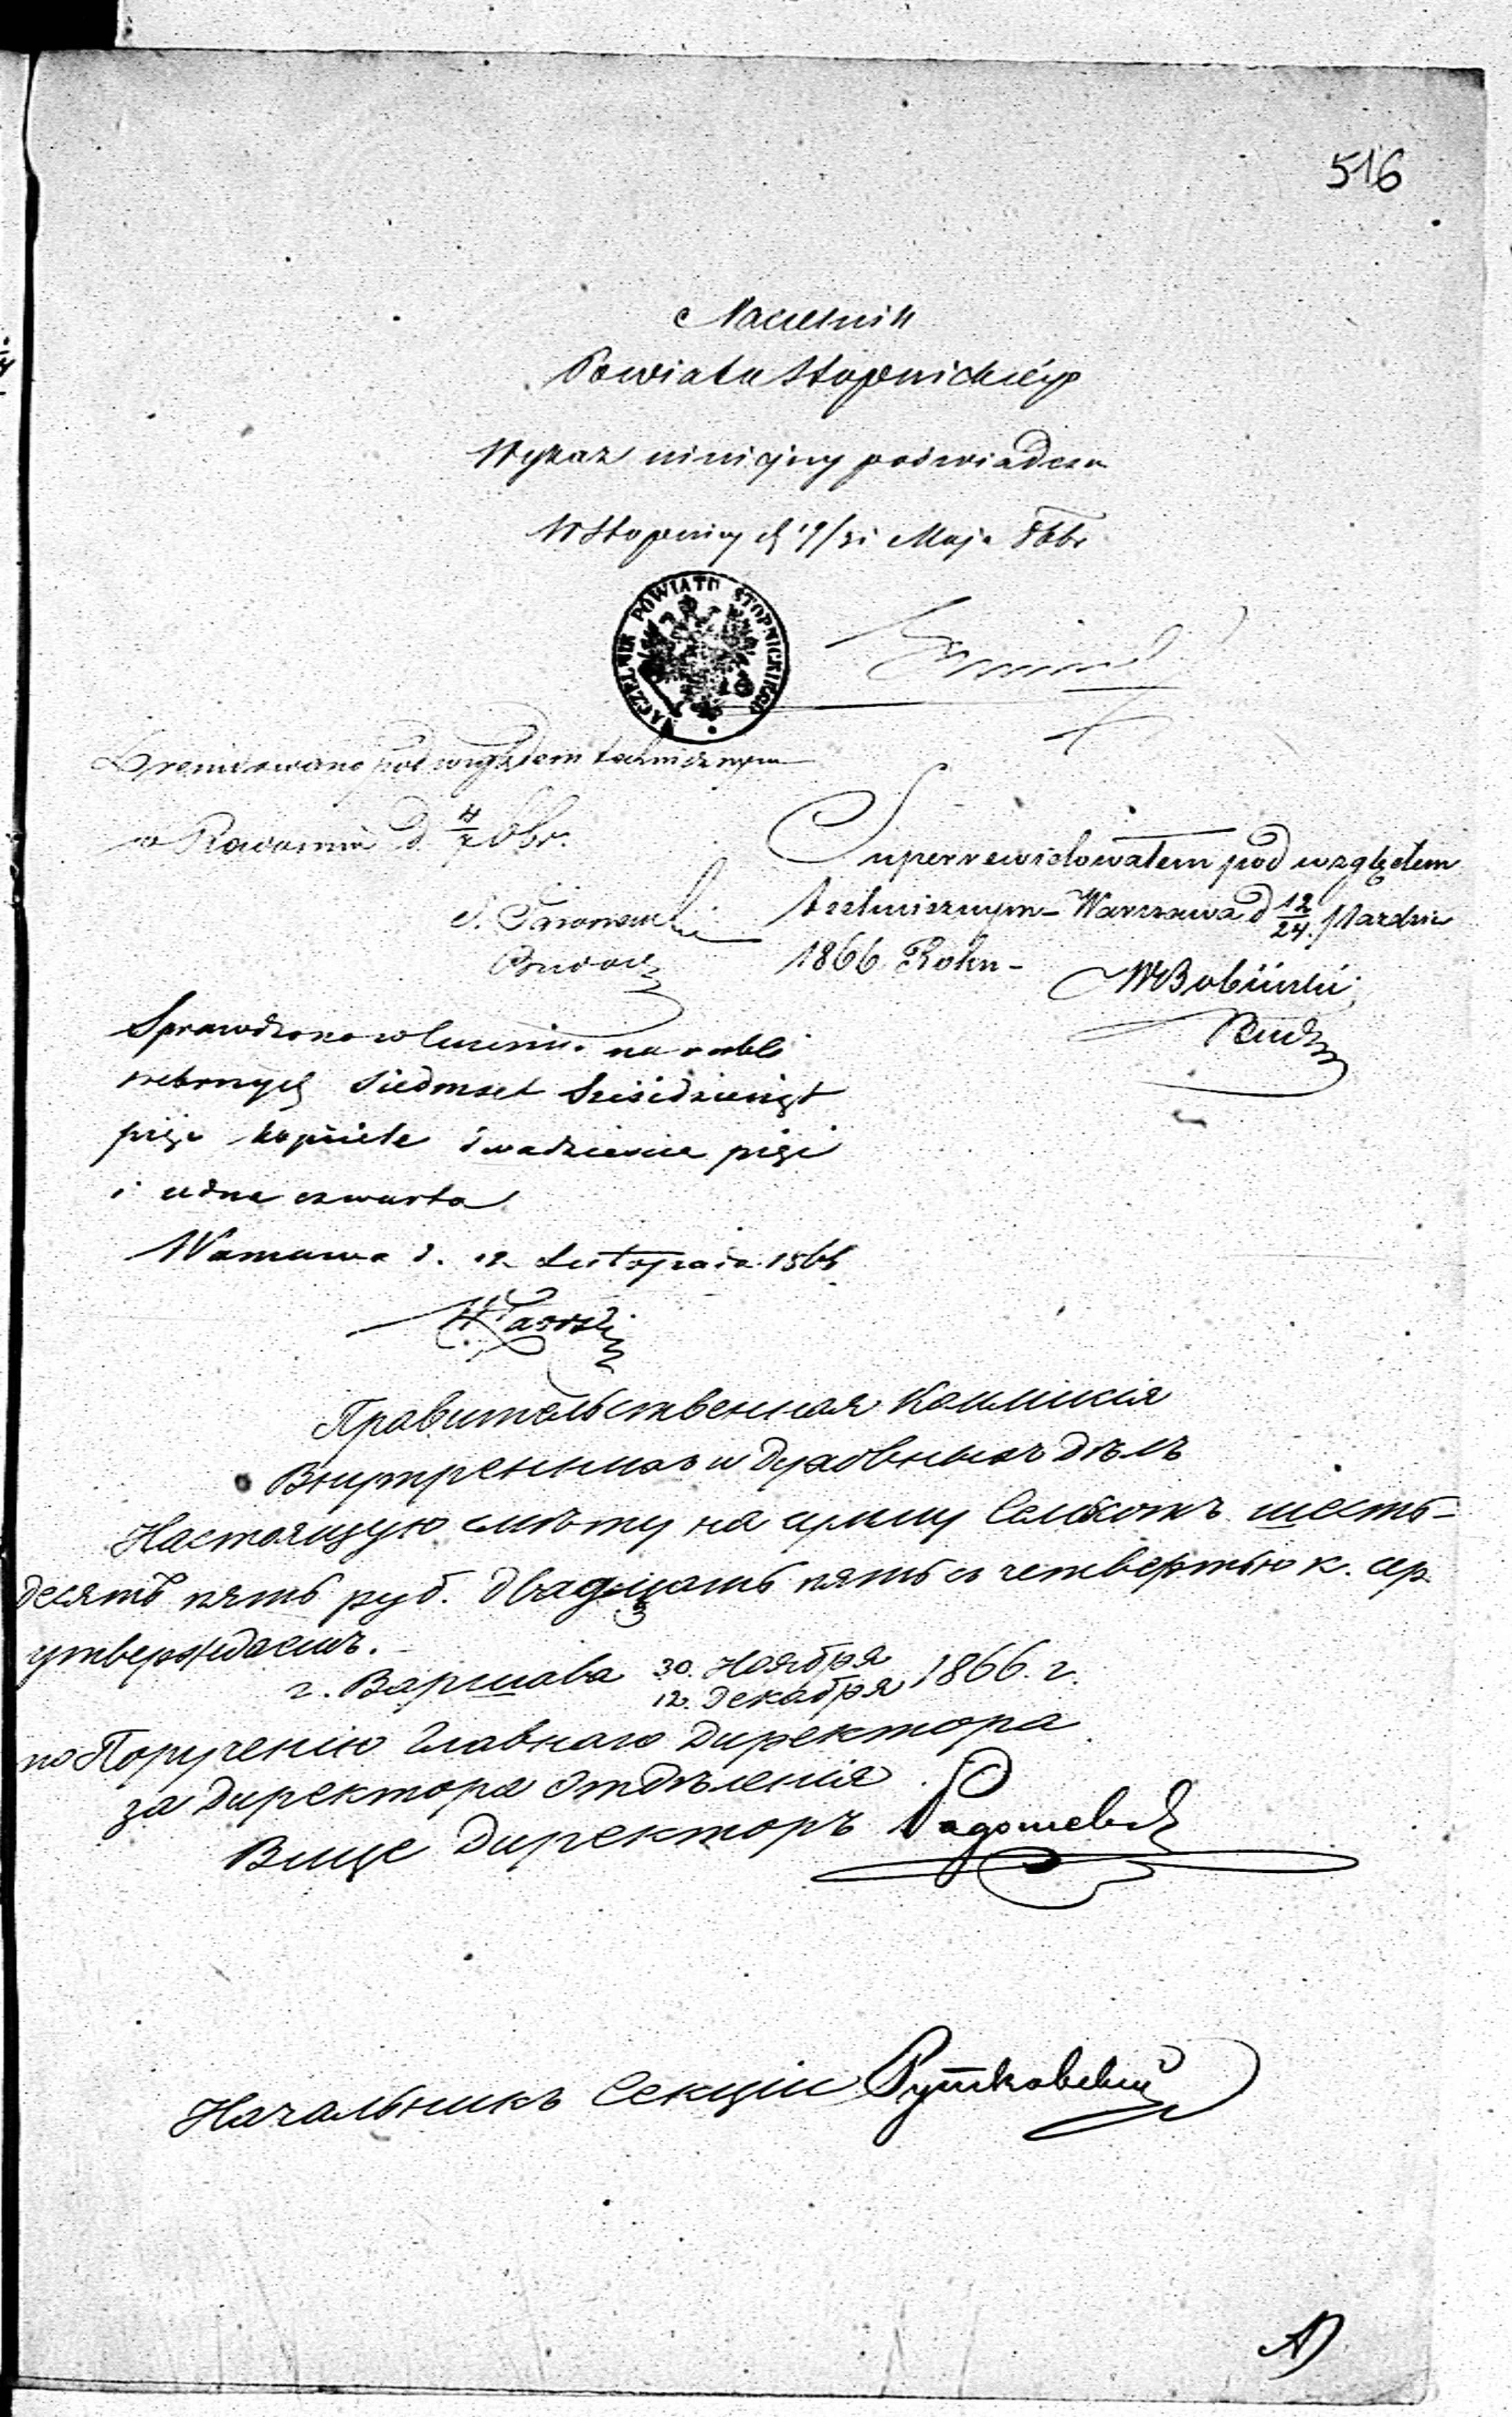 516
Naczelnik
Powiatu Stopnickiego
Wykaz niniejszy poświadcza
W Stopnicy d 19/31 Maja 866 r
NACZELNIK POWIATU STOPNICKIEGO
Zrewidowano pod względem technicznym
w d. 866 r.
Superrewidowałem pod względem
technicznym - Warszawa d 12/24 Paździer
1866 Roku -
W Bobiński
Budz
Sprawdzono w liczeniu na rubli
srebrnych siedmset sześćdziesiąt
pięć kopiejek dwadzieścia pięć
i jedna czwarta
Warszawa d. 12 Listopada 1866
Правительственная Коммисія
Внутреннихъ и Духовныхъ дѣлъ
Настоящую смѣту на сумму Семьсотъ шесть-
десятъ пять руб. двадцать пять съ четвертью к. сер.
утверждаетъ. -
г. Варшава 30. Ноября / 12. Декабря 1866. г.
по Порученію Главнаго Директора
за Директора Отдѣленія
Вице Директоръ Радошевскій
Начальникъ Секціи Рутковскій